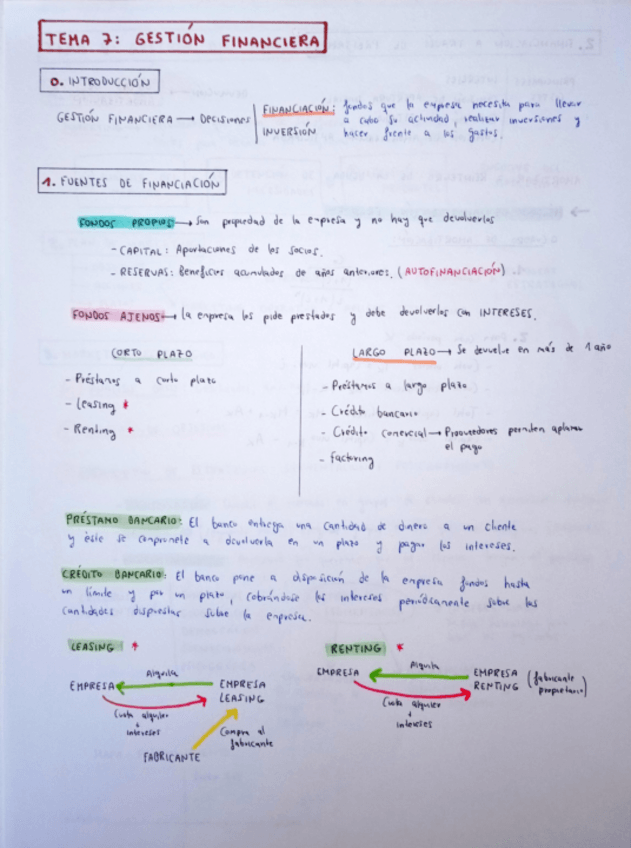 TEMA 7: GESTIÓN FINANCIERA
0. INTRODUCCIÓN
GESTIÓN FINANCIERA → Decisiones
FINANCIACIÓN: fondos que la empresa necesita para llevar
a cabo su actividad, realizar inversiones y
hacer frente a los gastos.
INVERSIÓN
1. FUENTES DE FINANCIACIÓN
FONDOS PROPIOS → Son propiedad de la empresa y no hay que devolverlos
- CAPITAL: Aportaciones de los socios.
- RESERVAS: Beneficios acumulados de años anteriores. (AUTOFINANCIACIÓN)
FONDOS AJENOS → La empresa los pide prestados y debe devolverlos con INTERESES.
CORTO PLAZO
- Préstamos a corto plazo
- Leasing *
- Renting *
LARGO PLAZO → Se devuelve en más de 1 año
- Préstamos a largo plazo
- Crédito bancario
- Crédito comercial → Proveedores permiten aplazar
el pago
- Factoring
PRÉSTAMO BANCARIO: El banco entrega una cantidad de dinero a un cliente
y éste se compromete a devolverla en un plazo y pagar los intereses.
CRÉDITO BANCARIO: El banco pone a disposición de la empresa fondos hasta
un límite y por un plazo, cobrándose los intereses periódicamente sobre las
cantidades dispuestas sobre la empresa.
LEASING *
Alquila
EMPRESA
EMPRESA
LEASING
Cuota alquiler
+
intereses
Compra al
fabricante
FABRICANTE
RENTING *
Alquila
EMPRESA
EMPRESA
RENTING
(fabricante
propietario)
Cuota alquiler
+
intereses